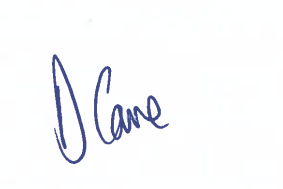 D Cane